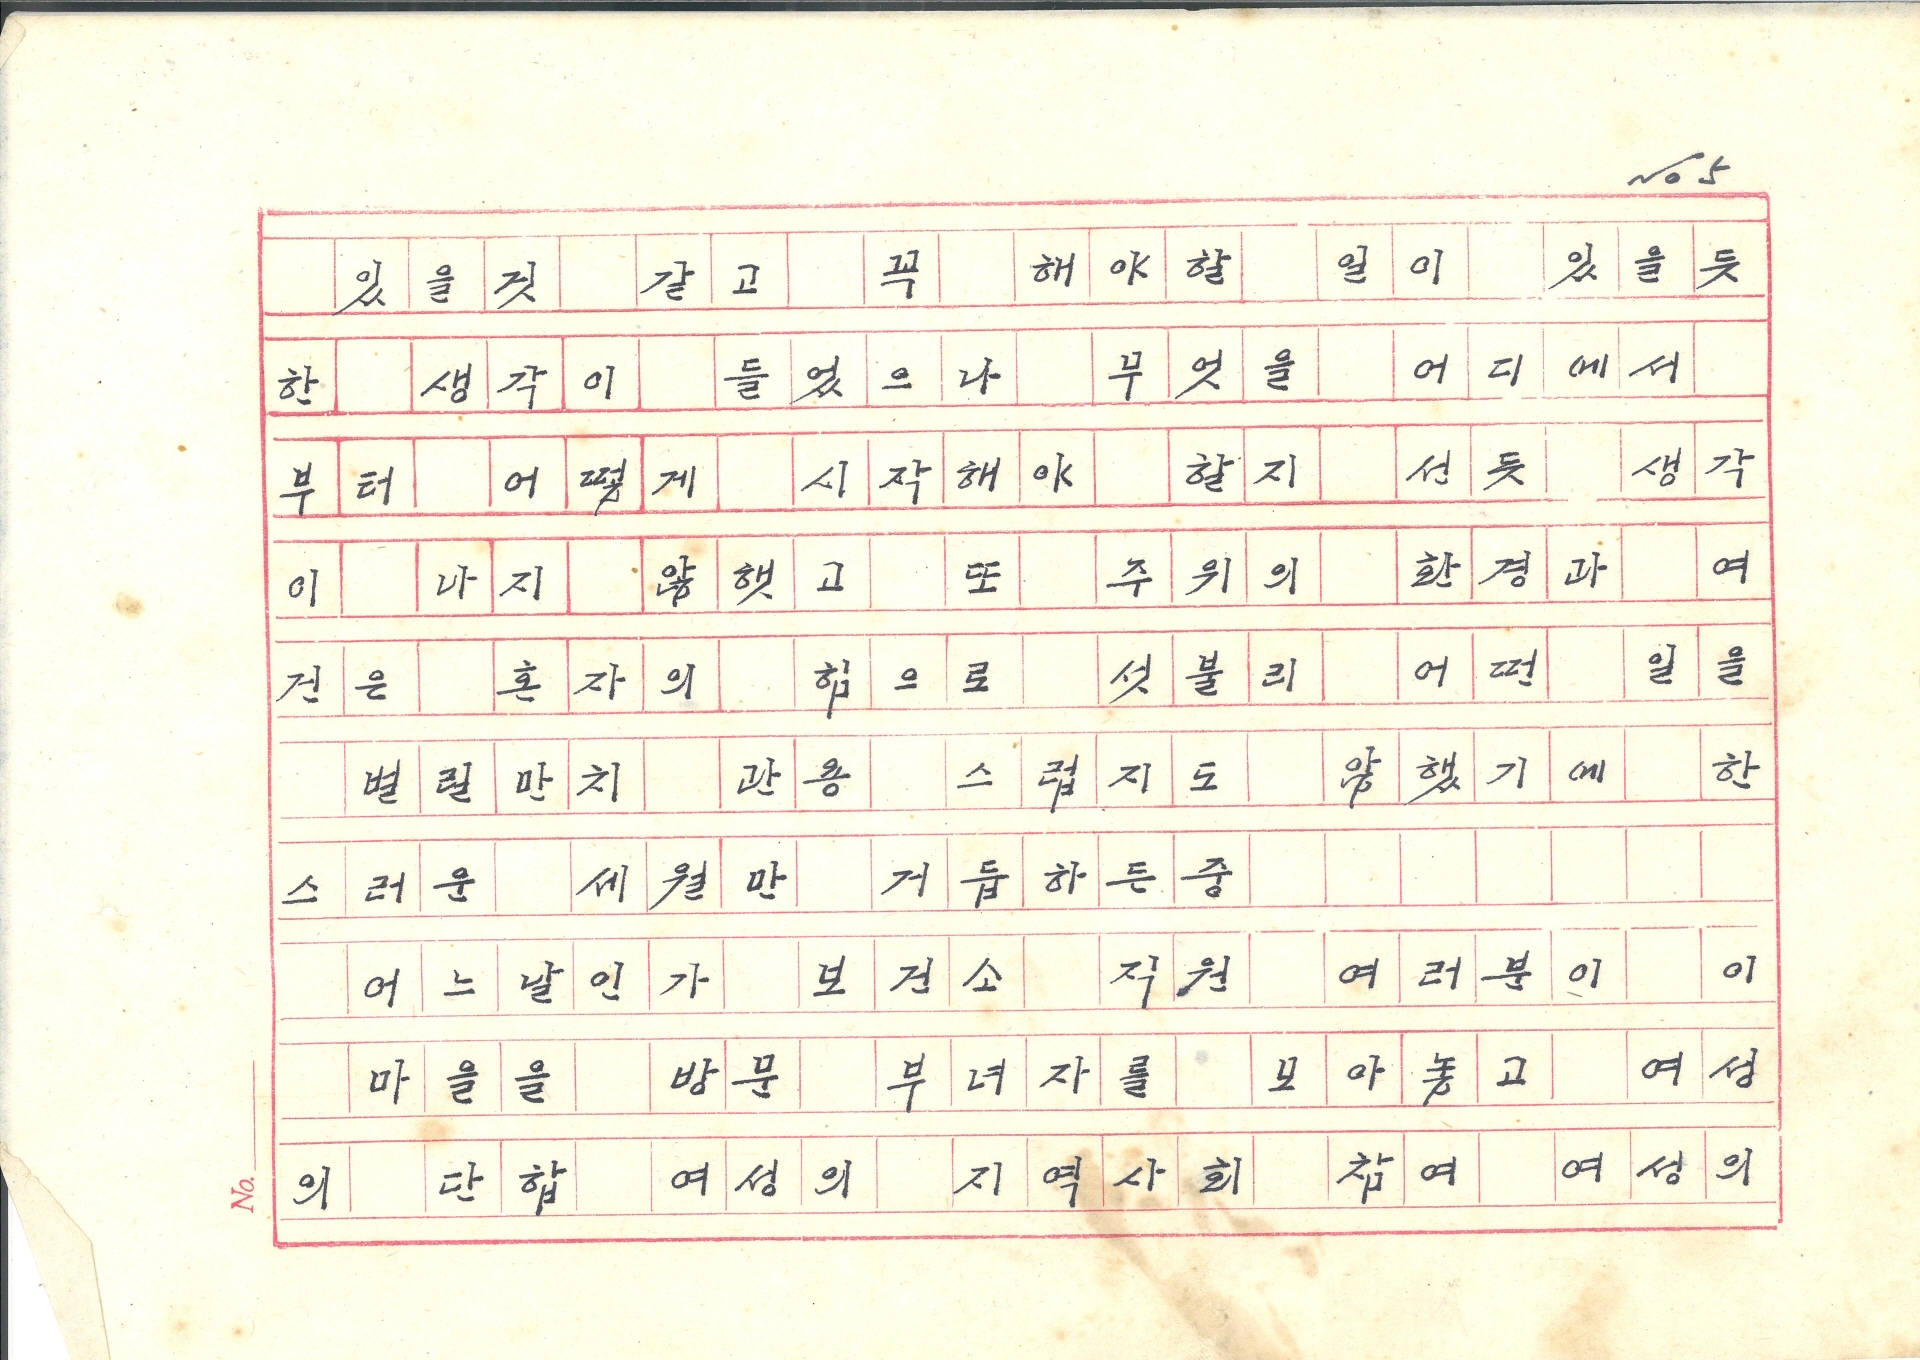 No 5
있을것 같고 꼭 해야할 일이 있을듯
한 생각이 들었으나 무엇을 어디에서
부터 어떻게 시작해야 할지 선듯 생각
이 나지 않햇고 또 주위의 환경과 여
건은 혼자의 힘으로 섯불리 어떤 일을
벌릴만치 관용 스럽지도 않했기에 한
스러운 세월만 거듭하든중
어느날인가 보건소 직원 여러분이 이
마을을 방문 부녀자를 모아놓고 여성
의 단합 여성의 지역사회 참여 여성의
No.